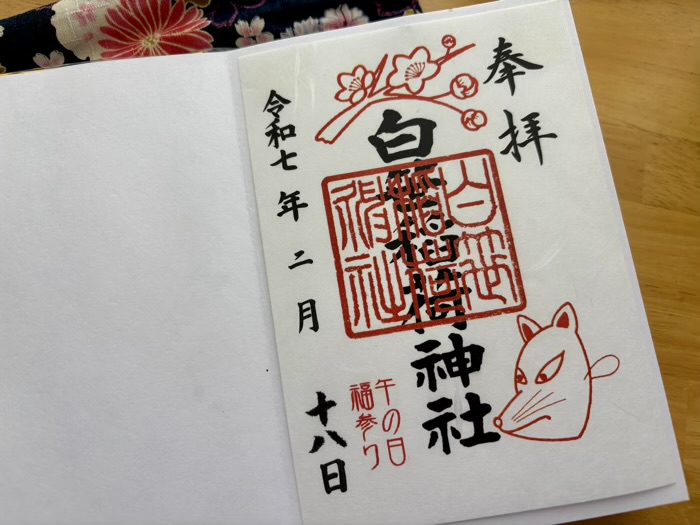 奉拝
白笹稲荷神社
白笹
稲荷
神社
午の日
福参り
令和七年二月十八日